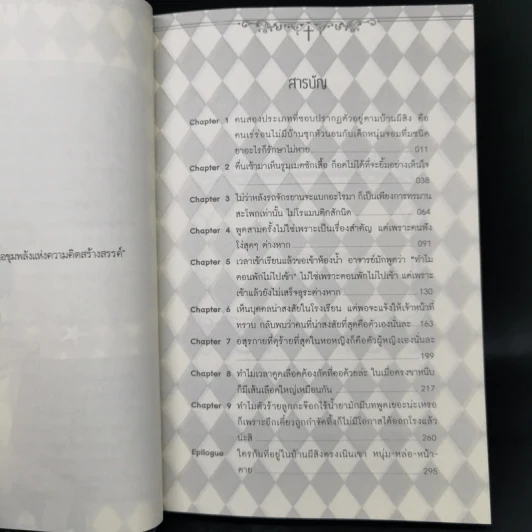 สารบัญ
Chapter 1 คนสองประเภทที่ชอบปรากฏตัวอยู่ตามบ้านผีสิง คือ
คนเร่ร่อนไม่มีบ้านซุกหัวนอนกับเด็กหนุ่มจอมหื่นชนิด
ยาอะไรก็รักษาไม่หาย 011
Chapter 2 ตื่นเช้ามาเห็นรูมเมตซักเสื้อ ก็อดไม่ได้ที่จะยิ้มอย่างเต็มใจ
038
Chapter 3 ไม่ว่าหลังรถจักรยานจะแบกอะไรมา ก็เป็นเพียงการทรมาน
สะโพกเท่านั้น ไม่โรแมนติกสักนิด 064
Chapter 4 พูดสามครั้งไม่ใช่เพราะเป็นเรื่องสำคัญ แต่เพราะคนฟัง
โง่สุดๆ ต่างหาก 091
Chapter 5 เวลาเข้าเรียนแล้วขอเข้าห้องน้ำ อาจารย์มักพูดว่า "ทำไม
ตอนพักไม่ไปเข้า" ไม่ใช่เพราะตอนพักไม่ไปเข้า แต่เพราะ
เข้าแล้วยังไม่เสร็จธุระต่างหาก 130
Chapter 6 เห็นบุคคลน่าสงสัยในโรงเรียน แต่พอจะแจ้งให้เจ้าหน้าที่
ทราบ กลับพบว่าคนที่น่าสงสัยที่สุดคือตัวเองนั่นละ 163
Chapter 7 อสุรกายที่ดุร้ายที่สุดในหอหญิงก็คือตัวผู้หญิงเองนั่นละ
199
Chapter 8 ทำไมเวลาดูดเลือดต้องกัดที่คอด้วยล่ะ ในเมื่อตรงขาหนีบ
ก็มีเส้นเลือดใหญ่เหมือนกัน 217
Chapter 9 ทำไมตัวร้ายลูกกะจ๊อกไร้น้ำยามักมีบทพูดเยอะน่ะเหรอ
ก็เพราะอีกเดี๋ยวถูกกำจัดทิ้งก็ไม่มีโอกาสได้ออกโรงแล้ว
น่ะสิ 260
Epilogue ใครกันที่อยู่ในบ้านผีสิงตรงเนินเขา หนุ่ม-หล่อ-หน้า-
ตาย 295
อขุมพลังแห่งความคิดสร้างสรรค์"